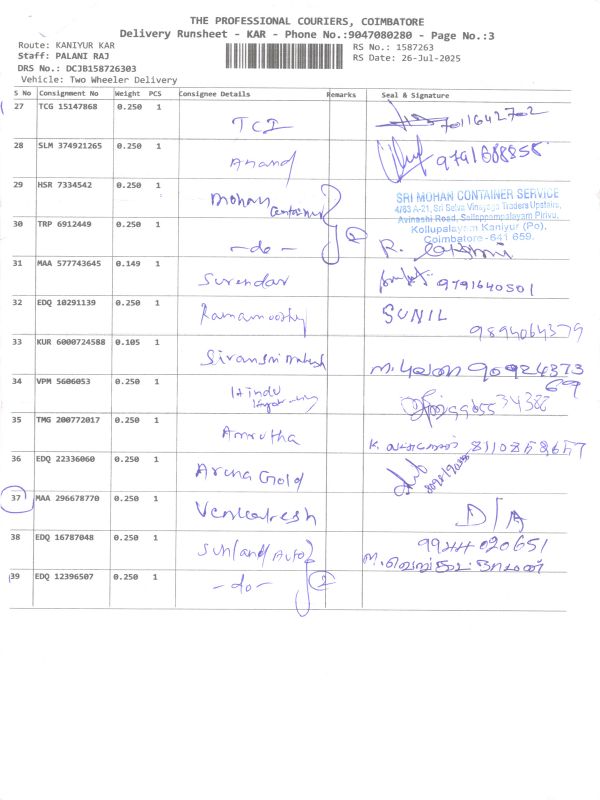 THE PROFESSIONAL COURIERS, COIMBATORE
Delivery Runsheet - KAR - Phone No.:9047080280 - Page No.:3
Route: KANIYUR KAR RS No.: 1587263
Staff: PALANI RAJ RS Date: 26-Jul-2025
DRS No.: DCJB158726303
Vehicle: Two Wheeler Delivery
S No Consignment No Weight PCS Consignee Details Remarks Seal & Signature
27 TCG 15147868 0.250 1 TCI 7011642702
28 SLM 374921265 0.250 1 Anand 9791688858
29 HSR 7334542 0.250 1 Mohan
SRI MUHAN CONTAINER SERVICE
4/63 A-21, Sri Selva Vinayaga Traders Upstairs,
Avinashi Road, Sallappampalayam Pirivu,
Kollupalayam Kaniyur (Po),
Coimbatore - 641 659.
30 TRP 6912449 0.250 1 -do- 2 R.
31 MAA 577743645 0.149 1 Surendar 9791640501
32 EDQ 10291139 0.250 1 Ramamoorthy SUNIL
9894064379
33 KUR 6000724588 0.105 1 90924373
69
34 VPM 5606053 0.250 1 Hindu
35 TMG 200772017 0.250 1 Amrutha K.
36 EDQ 22336060 0.250 1 Arena Gold
37 MAA 296678770 0.250 1 Venkatesh D/A
38 EDQ 16787048 0.250 1 Sunland Auto 9944020651
39 EDQ 12396507 0.250 1 -do- 2